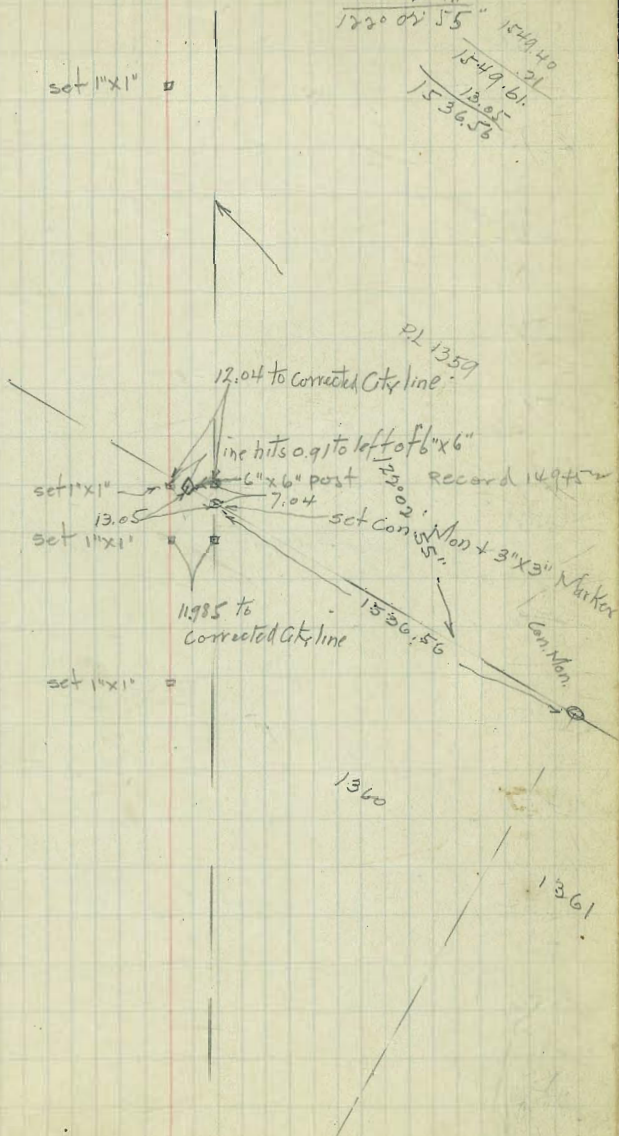 122° 02' 55"
1549.40
.21
1549.61
13.05
1536.56
set 1"x1"
P.L 1359
12.04 to Corrected City line
line hits 0.91 to left of 6"x6"
set 1"x1"
6"x6" post
Record 1495
7.04
13.05
122°02'
55"
set Con. Mon + 3"x3" Marker
set 1"x1"
11.985 to
Corrected City line
1536.56
Con. Mon.
set 1"x1"
1360
1361